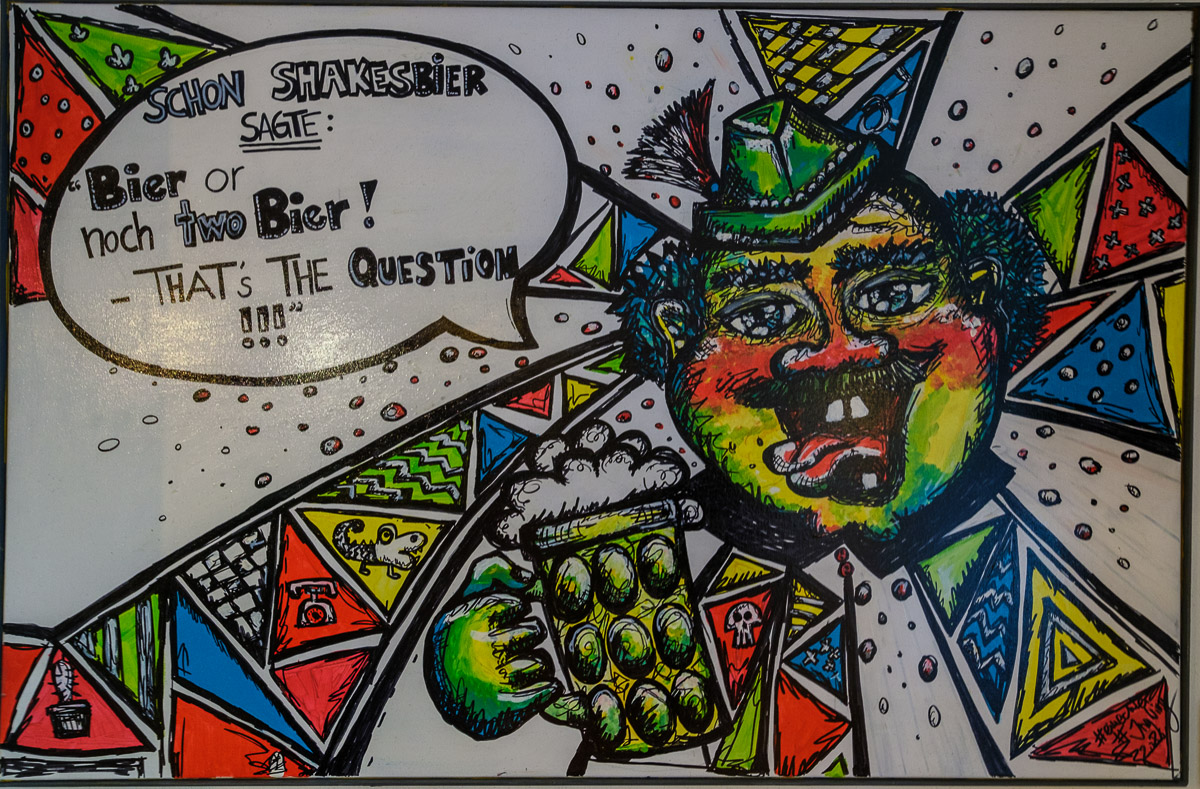 SCHON SHAKESBIER
SAGTE:
"Bier or
noch two Bier!
- THAT'S THE QUESTION
!!!"